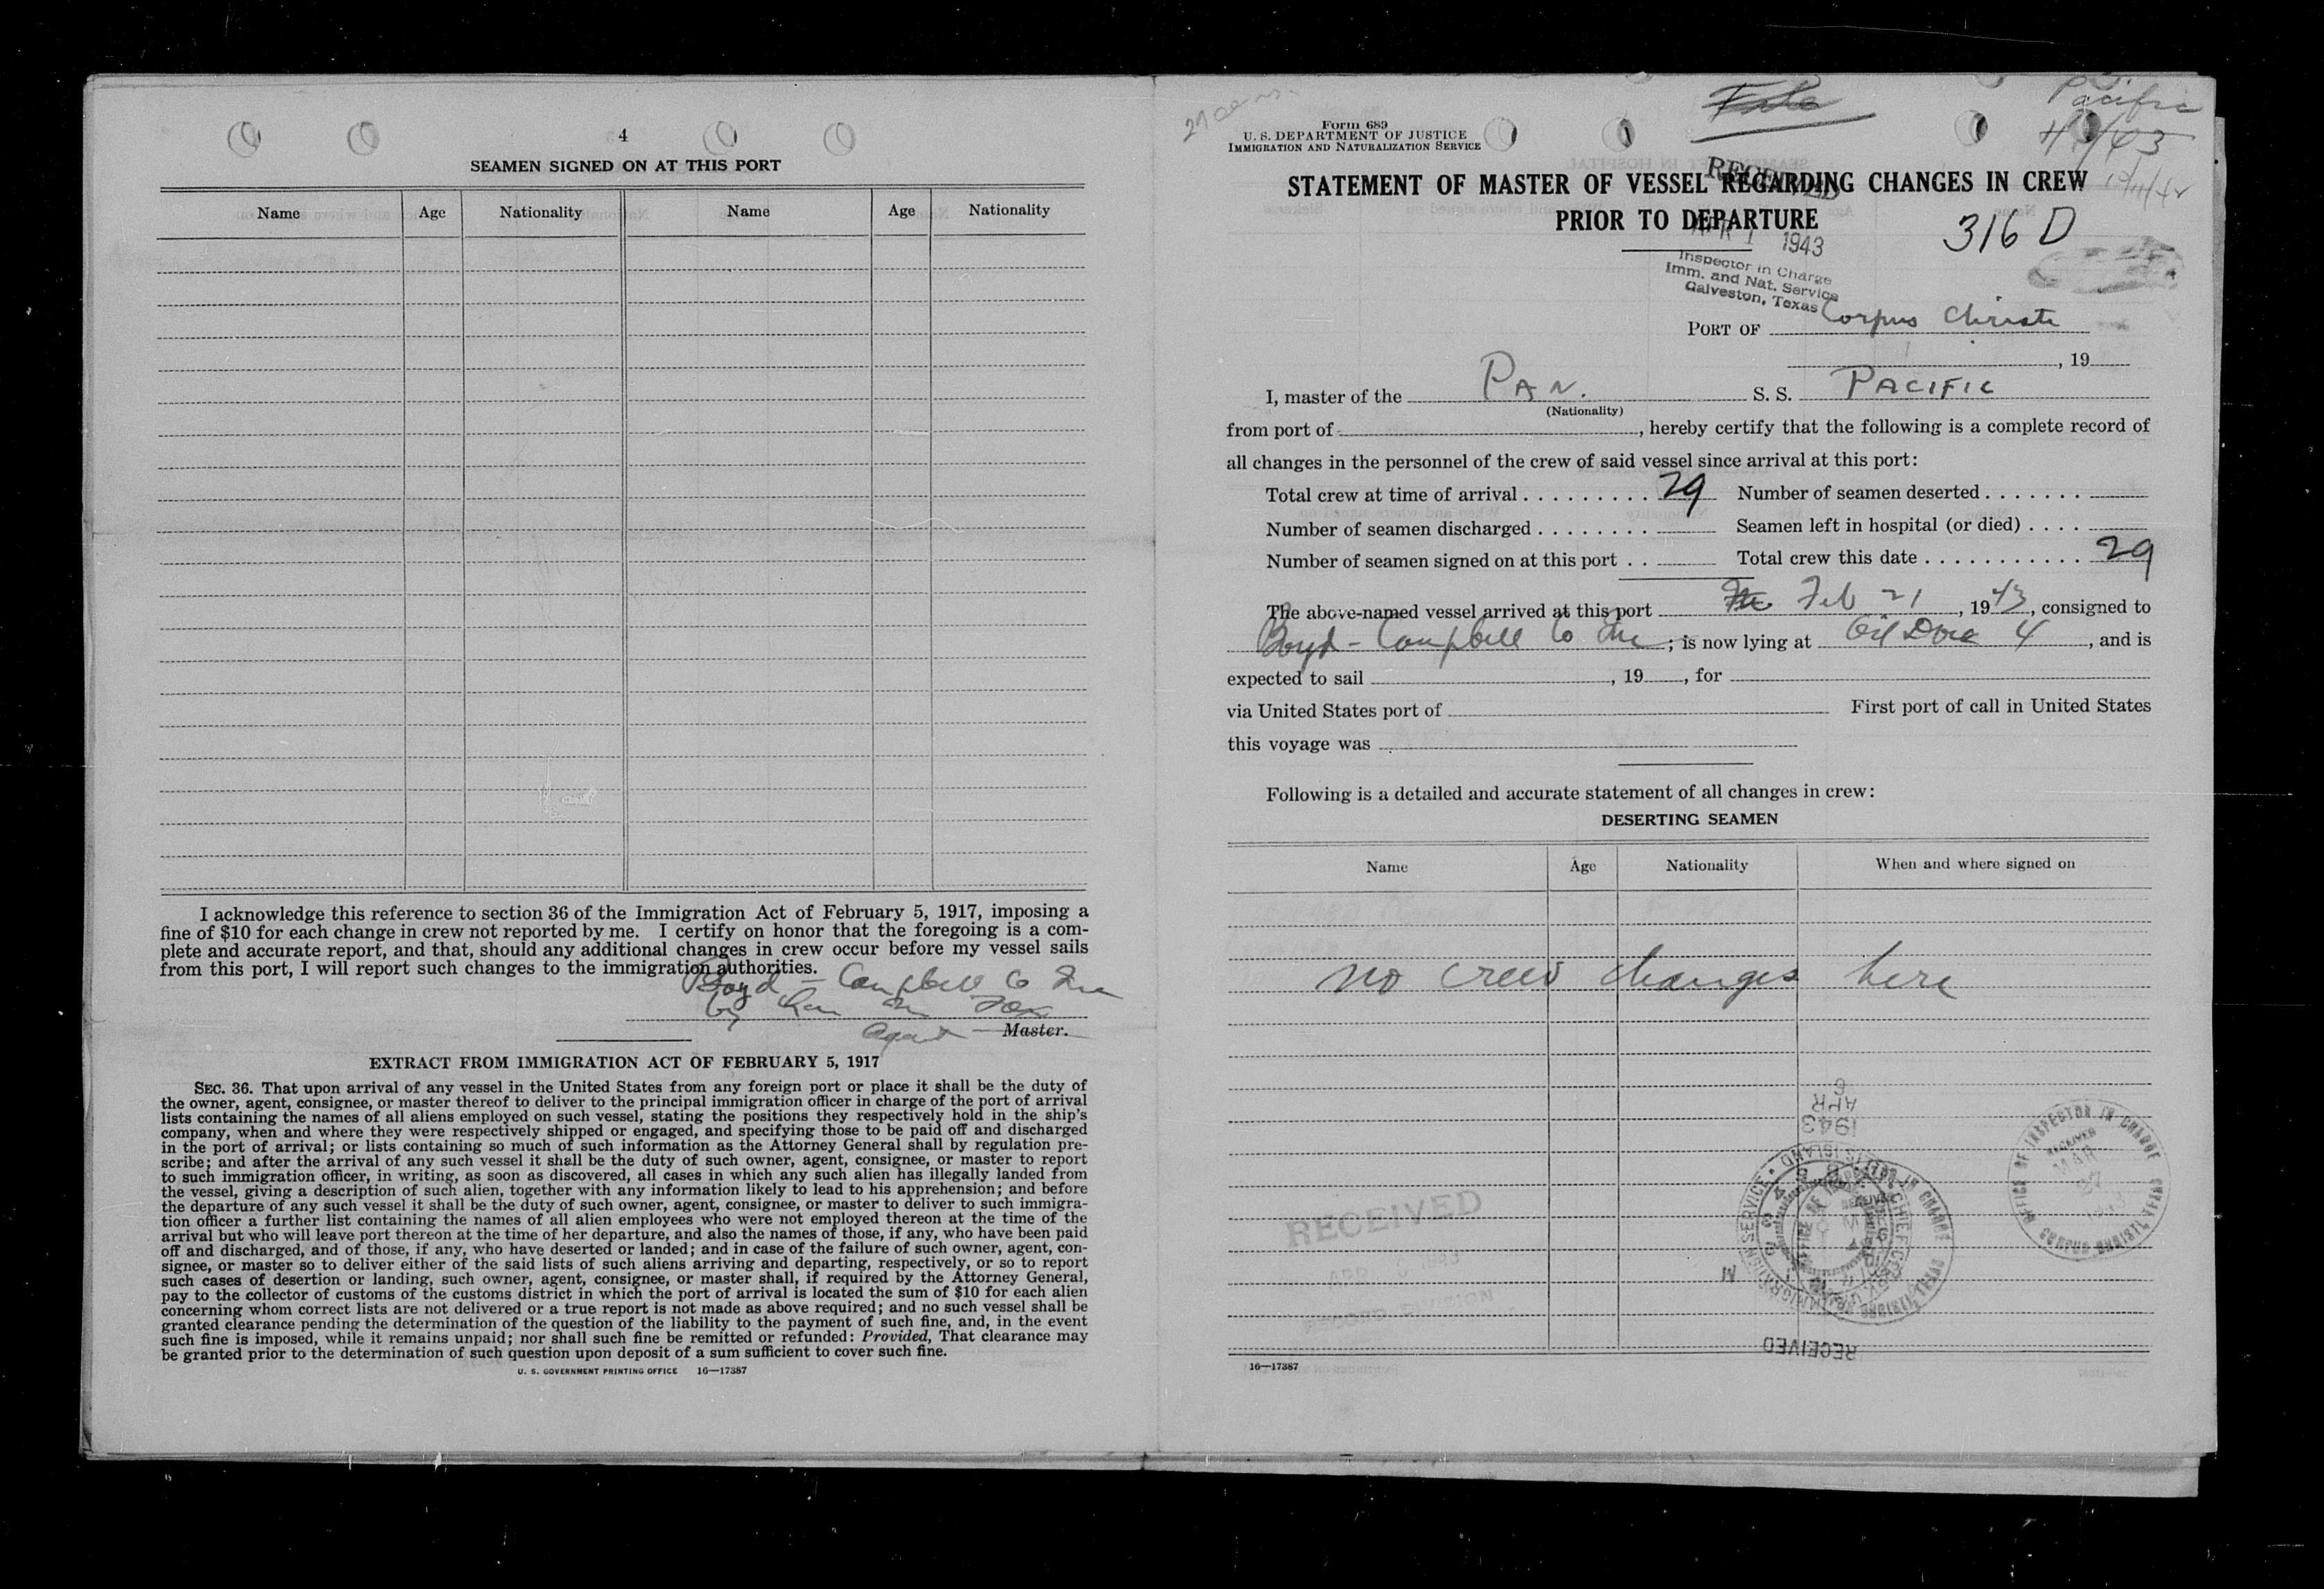 4
SEAMEN SIGNED ON AT THIS PORT
Name Age Nationality Name Age Nationality
I acknowledge this reference to section 36 of the Immigration Act of February 5, 1917, imposing a
fine of $10 for each change in crew not reported by me. I certify on honor that the foregoing is a com-
plete and accurate report, and that, should any additional changes in crew occur before my vessel sails
from this port, I will report such changes to the immigration authorities.
Boyd - Campbell Co Inc
by
Agent Master.
EXTRACT FROM IMMIGRATION ACT OF FEBRUARY 5, 1917
SEC. 36. That upon arrival of any vessel in the United States from any foreign port or place it shall be the duty of
the owner, agent, consignee, or master thereof to deliver to the principal immigration officer in charge of the port of arrival
lists containing the names of all aliens employed on such vessel, stating the positions they respectively hold in the ship's
company, when and where they were respectively shipped or engaged, and specifying those to be paid off and discharged
in the port of arrival; or lists containing so much of such information as the Attorney General shall by regulation pre-
scribe; and after the arrival of any such vessel it shall be the duty of such owner, agent, consignee, or master to report
to such immigration officer, in writing, as soon as discovered, all cases in which any such alien has illegally landed from
the vessel, giving a description of such alien, together with any information likely to lead to his apprehension; and before
the departure of any such vessel it shall be the duty of such owner, agent, consignee, or master to deliver to such immigra-
tion officer a further list containing the names of all alien employees who were not employed thereon at the time of the
arrival but who will leave port thereon at the time of her departure, and also the names of those, if any, who have been paid
off and discharged, and of those, if any, who have deserted or landed; and in case of the failure of such owner, agent, con-
signee, or master so to deliver either of the said lists of such aliens arriving and departing, respectively, or so to report
such cases of desertion or landing, such owner, agent, consignee, or master shall, if required by the Attorney General,
pay to the collector of customs of the customs district in which the port of arrival is located the sum of $10 for each alien
concerning whom correct lists are not delivered or a true report is not made as above required; and no such vessel shall be
granted clearance pending the determination of the question of the liability to the payment of such fine, and, in the event
such fine is imposed, while it remains unpaid; nor shall such fine be remitted or refunded: Provided, That clearance may
be granted prior to the determination of such question upon deposit of a sum sufficient to cover such fine.
U. S. GOVERNMENT PRINTING OFFICE 16—17387
Pacific
Form 689
U. S. DEPARTMENT OF JUSTICE
IMMIGRATION AND NATURALIZATION SERVICE
RECEIVED
STATEMENT OF MASTER OF VESSEL REGARDING CHANGES IN CREW
PRIOR TO DEPARTURE
316 D
APR 1 1943
Inspector in Charge
Imm. and Nat. Service
Galveston, Texas
PORT OF Corpus Christi
, 19
I, master of the PAN. S. S. PACIFIC
(Nationality)
from port of , hereby certify that the following is a complete record of
all changes in the personnel of the crew of said vessel since arrival at this port:
Total crew at time of arrival 29 Number of seamen deserted
Number of seamen discharged Seamen left in hospital (or died)
Number of seamen signed on at this port Total crew this date 29
The above-named vessel arrived at this port Feb 21, 1943, consigned to
Boyd - Campbell Co Inc; is now lying at Oil Dock 4, and is
expected to sail , 19 , for
via United States port of First port of call in United States
this voyage was
Following is a detailed and accurate statement of all changes in crew:
DESERTING SEAMEN
Name Age Nationality When and where signed on
no crew changes here
APR
1943
OFFICE OF INSPECTOR IN CHARGE
RECEIVED
MAR
RECEIVED
RECEIVED
16—17387